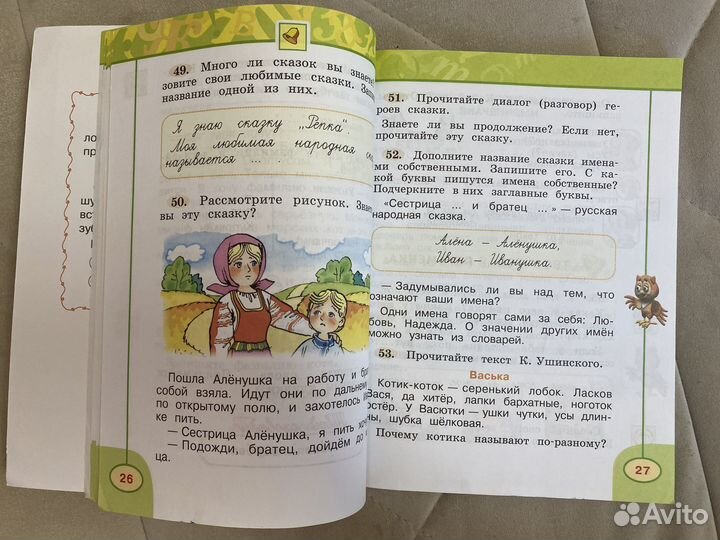 49. Много ли сказок вы знаете?
зовите свои любимые сказки.
название одной из них.
Я знаю сказку „Репка“.
Моя любимая народная
называется ... .
50. Рассмотрите рисунок.
вы эту сказку?
Пошла Алёнушка на работу и
собой взяла. Идут они по дальнему
по открытому полю, и захотелось
ке пить.
— Сестрица Алёнушка, я пить
— Подожди, братец, дойдём до
ца.
26
51. Прочитайте диалог (разговор) ге-
роев сказки.
Знаете ли вы продолжение? Если нет,
прочитайте эту сказку.
52. Дополните название сказки имена-
ми собственными. Запишите его. С ка-
кой буквы пишутся имена собственные?
Подчеркните в них заглавные буквы.
«Сестрица ... и братец ...» — русская
народная сказка.
Алёна – Алёнушка,
Иван – Иванушка.
— Задумывались ли вы над тем, что
означают ваши имена?
Одни имена говорят сами за себя: Лю-
бовь, Надежда. О значении других имён
можно узнать из словарей.
53. Прочитайте текст К. Ушинского.
Васька
Котик-коток — серенький лобок. Ласков
Вася, да хитёр, лапки бархатные, ноготок
остёр. У Васютки — ушки чутки, усы длин-
ны, шубка шёлковая.
Почему котика называют по-разному?
27
Avito